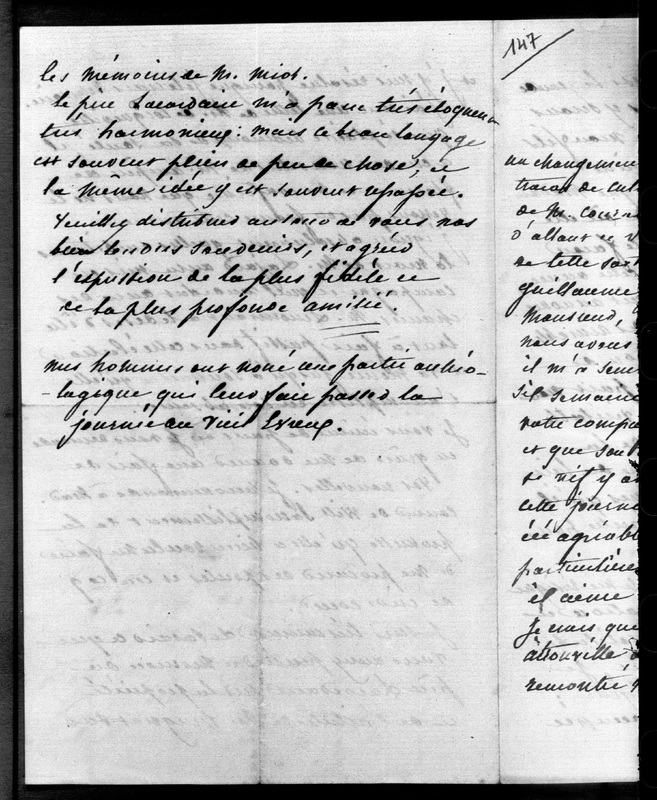 les mémoires de M. Miot.
le père Lacordaire m'a paru très éloquent
très harmonieux : mais ce beau langage
est souvent plein de peu de chose, et
la même idée y est souvent repassée.
Veuillez distribuer autour de vous nos
bien tendres souvenirs, et agréer
l'expression de la plus fidèle et
de la plus profonde amitié.
nos hommes ont noué une partie archéo-
-logique qui leur fait passer la
journée au Vieil Evreux.
147
un changement
travail de
de M.
d'allant
de cette
Guillaume
Monsieur,
nous avons
il m'a
s'il
votre
et que
de
cette journée
été agréable
particulière
il aime
Je crois que
remonté